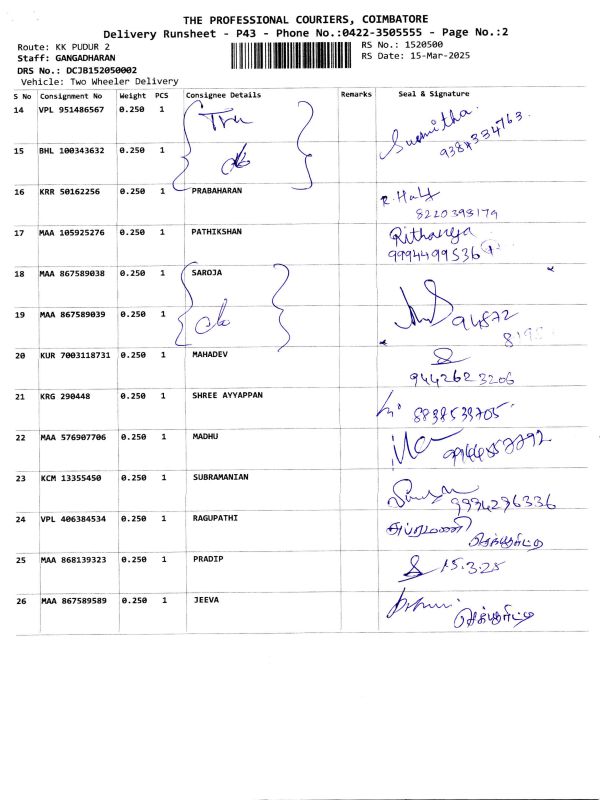 THE PROFESSIONAL COURIERS, COIMBATORE
Delivery Runsheet - P43 - Phone No.:0422-3505555 - Page No.:2
Route: KK PUDUR 2 RS No.: 1520500
Staff: GANGADHARAN RS Date: 15-Mar-2025
DRS No.: DCJB152050002
Vehicle: Two Wheeler Delivery
S No Consignment No Weight PCS Consignee Details Remarks Seal & Signature
14 VPL 951486567 0.250 1 Sushmitha
15 BHL 100343632 0.250 1 9384334763
16 KRR 50162256 0.250 1 PRABAHARAN
8220398179
17 MAA 105925276 0.250 1 PATHIKSHAN
9994499536
18 MAA 867589038 0.250 1 SAROJA
19 MAA 867589039 0.250 1 94872
20 KUR 7003118731 0.250 1 MAHADEV
9442623206
21 KRG 290448 0.250 1 SHREE AYYAPPAN
8838533705
22 MAA 576907706 0.250 1 MADHU
23 KCM 13355450 0.250 1 SUBRAMANIAN
9994296336
24 VPL 406384534 0.250 1 RAGUPATHI
25 MAA 868139323 0.250 1 PRADIP 15.3.25
26 MAA 867589589 0.250 1 JEEVA